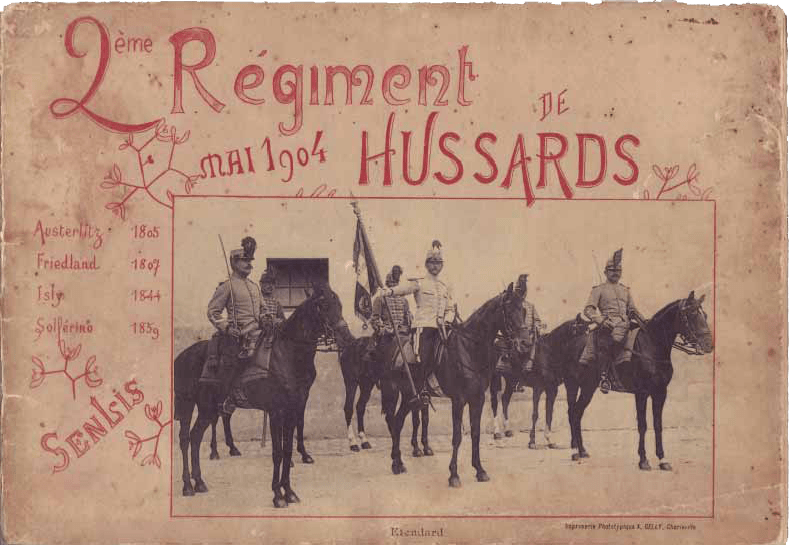 2ème Régiment
DE
MAI 1904 HUSSARDS
Austerlitz 1805
Friedland 1807
Isly 1844
Solférino 1859
SENLIS
Etendard
Imprimerie Phototypique X. GELLY,